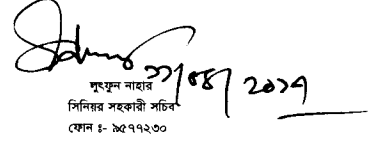 ২২/০৪/২০১৭
লুৎফুন নাহার
সিনিয়র সহকারী সচিব
ফোন ঃ- ৯৫৭৭২৩০